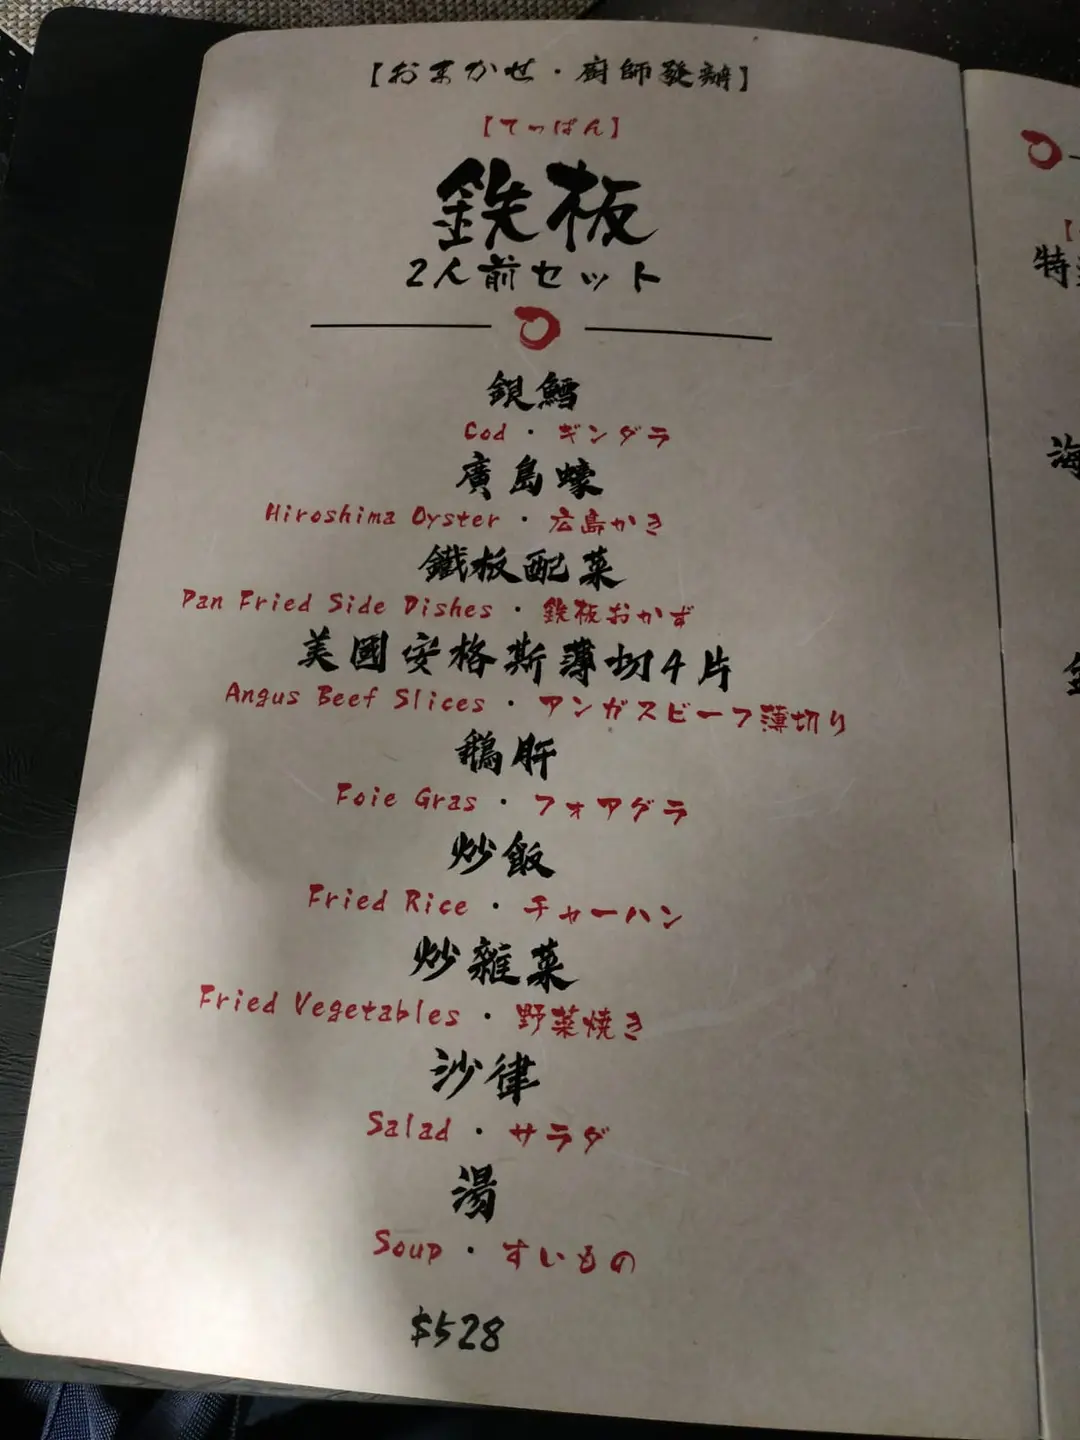 【おまかせ・廚師發辦】
【てっぱん】
鉄板
2人前セット
銀鱈
Cod・ギンダラ
廣島蠔
Hiroshima Oyster・広島かき
鐵板配菜
Pan Fried Side Dishes・鉄板おかず
美國安格斯薄切4片
Angus Beef Slices・アンガスビーフ薄切り
鵝肝
Foie Gras・フォアグラ
炒飯
Fried Rice・チャーハン
炒雜菜
Fried Vegetables・野菜焼き
沙律
Salad・サラダ
湯
Soup・すいもの
$528
特
海